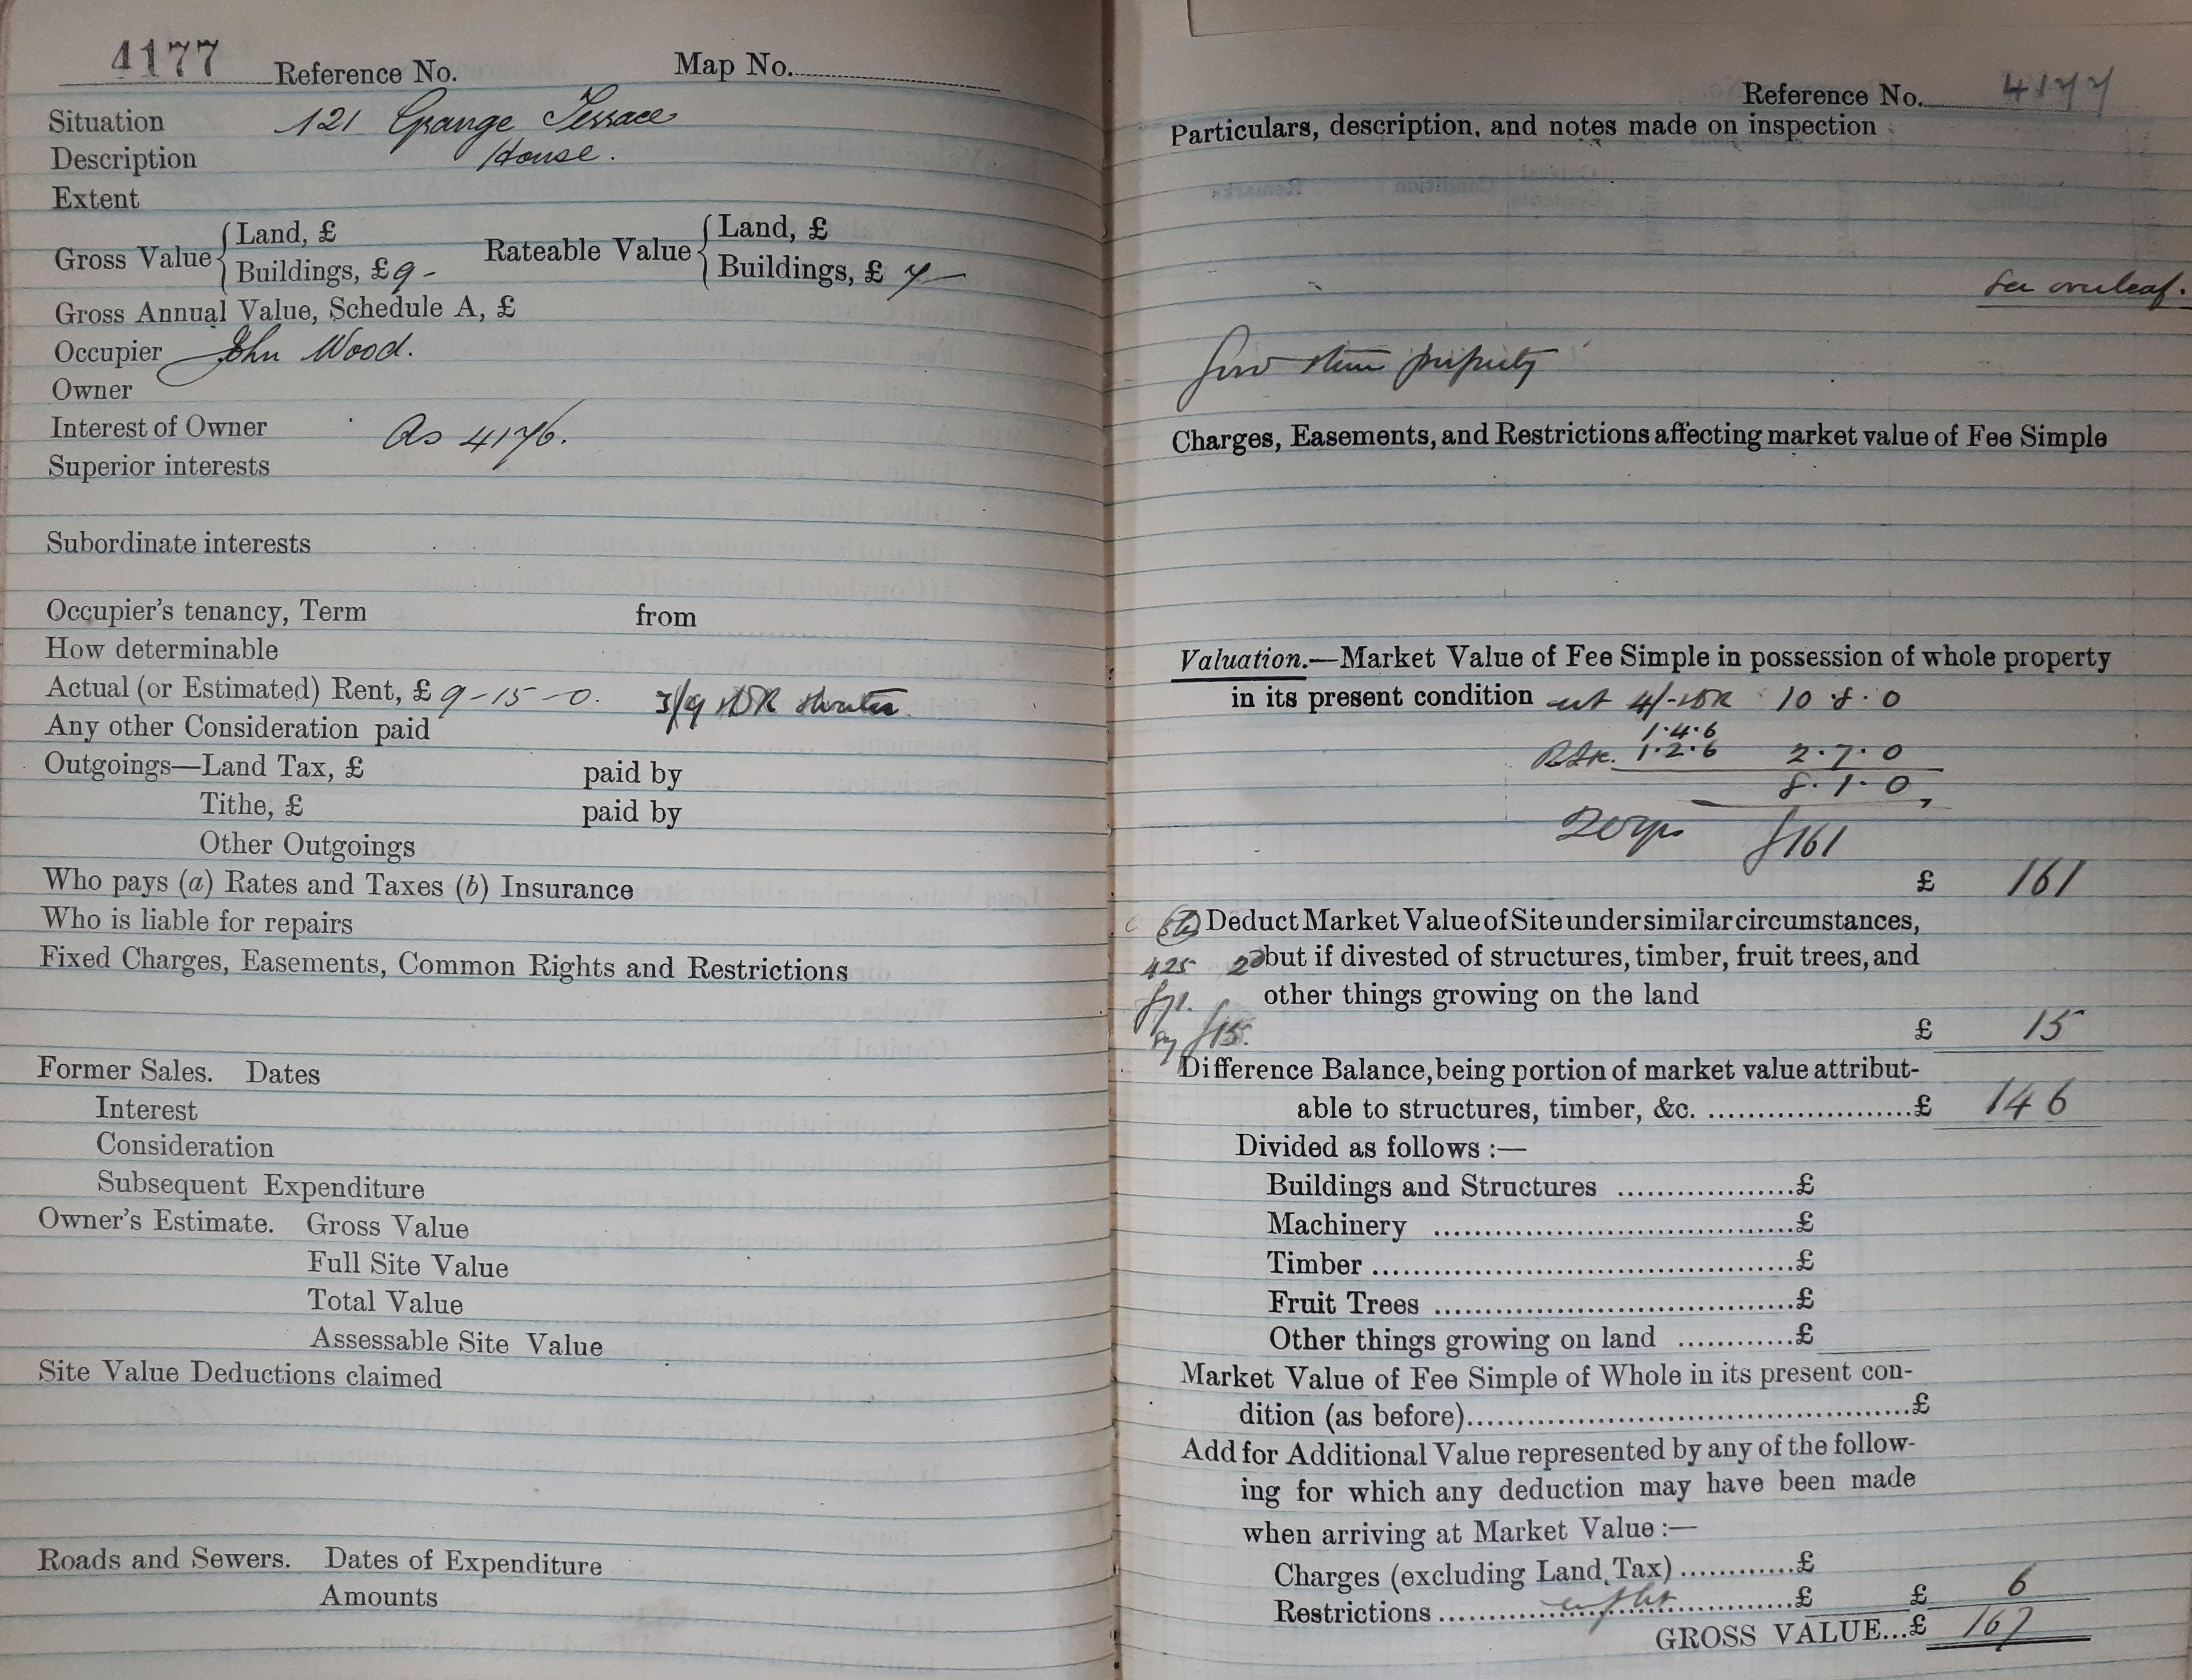 4177 Reference No. Map No.
Situation 121 Grange Terrace
Description House.
Extent
Gross Value { Land, £ Rateable Value { Land, £
Buildings, £ 9 - Buildings, £ 7 —
Gross Annual Value, Schedule A, £
Occupier John Wood.
Owner
Interest of Owner As 4176.
Superior interests
Subordinate interests
Occupier's tenancy, Term from
How determinable
Actual (or Estimated) Rent, £ 9-15-0. 3/9
Any other Consideration paid
Outgoings—Land Tax, £ paid by
Tithe, £ paid by
Other Outgoings
Who pays (a) Rates and Taxes (b) Insurance
Who is liable for repairs
Fixed Charges, Easements, Common Rights and Restrictions
Former Sales. Dates
Interest
Consideration
Subsequent Expenditure
Owner's Estimate. Gross Value
Full Site Value
Total Value
Assessable Site Value
Site Value Deductions claimed
Roads and Sewers. Dates of Expenditure
Amounts
Reference No. 4177
Particulars, description, and notes made on inspection
See overleaf.
property
Charges, Easements, and Restrictions affecting market value of Fee Simple
Valuation.—Market Value of Fee Simple in possession of whole property
in its present condition 4/- 10.8.0
1.4.6
1.2.6 2.7.0
8.1.0
20 yrs £161
£ 161
Deduct Market Value of Site under similar circumstances,
425 but if divested of structures, timber, fruit trees, and
other things growing on the land
say £15.
£ 15
Difference Balance, being portion of market value attribut-
able to structures, timber, &c. ....................£ 146
Divided as follows :—
Buildings and Structures ..................£
Machinery ....................................£
Timber ..........................................£
Fruit Trees ....................................£
Other things growing on land ............£
Market Value of Fee Simple of Whole in its present con-
dition (as before)............................................£
Add for Additional Value represented by any of the follow-
ing for which any deduction may have been made
when arriving at Market Value :—
Charges (excluding Land Tax) ............£
Restrictions ....................................£ £ 6
GROSS VALUE...£ 167